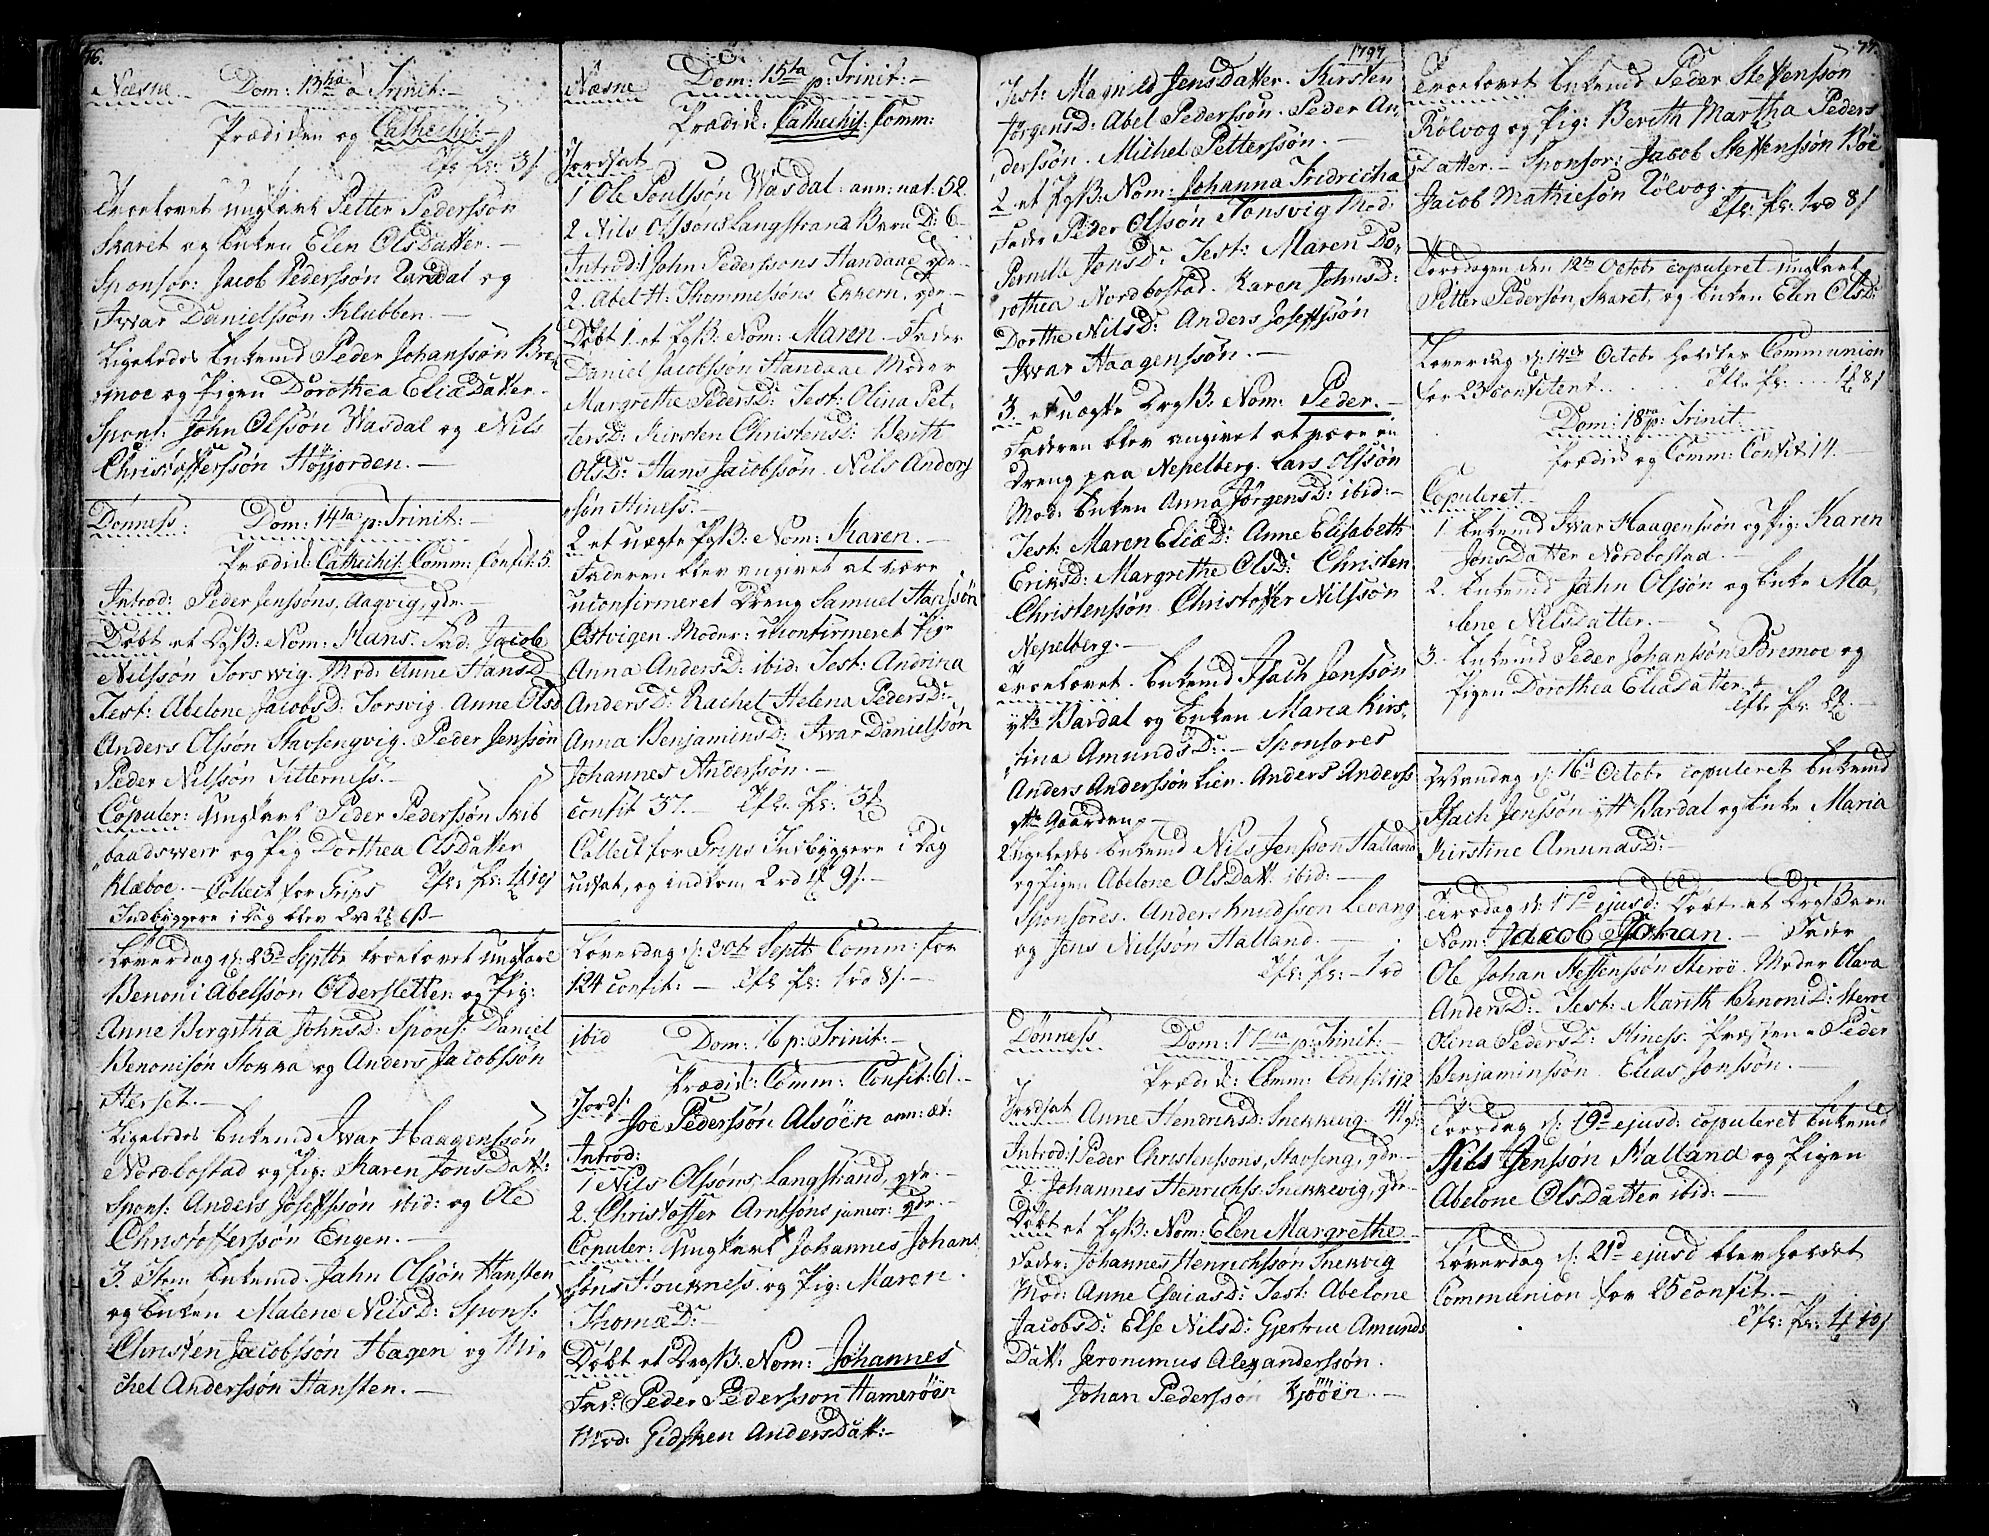 76.
Næsne Dom: 13tia a Trinit:
Prædiken og Cathechis:
Efr Pr: 3 f
Troelovet ungkarl Petter Pedersøn
Skaret og Enken Elen Olsdatter.
Sponsor: Jacob Pederssøn Zardal og
Iwar Danielssøn Klubben.
Ligeledes Enkemd Peder Johanssøn Bre-
moe og Pigen Dorothea Eliædatter.
Spons: John Olssøn Wasdal og Nils
Christoffersøn Høyjorden.
Dønness: Dom: 14ta p: Trinit:
Prædik: Cathechis: Comm: Confit: 5.
Introd: Peder Jenssøns, Aagvig, gde.
Døbt et DrgB: Nom: Hans. Fad: Jacob
Nilssøn Torswig. Mod: Anne HansD
Test: Abelone JacobsD: Torsvig. Anne Olsd
Anders Olssøn Stavsengvig. Peder Jenssøn
Peder Nilssøn Titterness.
Copuler: Ungkarl Peder Pederssøn Skib
baadswerr og Pig Dorthea Olsdatter
Klæboe. Collect for Grips Efr: Pr: 4 10 f
Indbyggere i Dag blev 2rd 2 6 ß
Løverdag d: 23d Septb troelovet ungkarl
Benoni Abelssøn Olderskletten og Pig:
Anne Birgitha JohnsD: Spons: Daniel
Benonisøn Stokka og Anders Jacobssøn
Herset.
Ligeledes Enkemd Iwar Haagenssøn
Nordbostad og Pig: Karen Jons Datt:
Spons: Anders Joseffsøn ibid: og Ole
Christofferssøn Engen.
3. Item Enkemd. Jahn Olssøn Hansten
og Enken Malene NilsD: Spons:
Christen Jacobssøn Hagen og Mi-
chel Anderssøn Hansten.
Næsne Dom: 15ta p: Trinit:
Prædik: Cathechis: Comm:
Jordsat
1 Ole Poulssøn Wasdal: ann: nat: 52.
2 Nils Olssøns Langstrand Barn D: 6
Introd: 1 John Pederssøns Handaae gde
2. Abel H: Thommessøns Ekkern, gde
Døbt 1. et PgB: Nom: Maren Fader
Daniel Jacobssøn Handaae Moder
Margrethe PedersD: Test: Olina Pet-
tersD: Kirsten ChristensD: Berith
OlsD: Hans Jacobssøn. Nils Anders
søn Hiness.
2 et uægte PgB: Nom: Karen.
Faderen blev angivet at være
uconfirmeret Dreng Samuel Hanssøn
Østvigen. Moder: uconfirmeret Pige
Anna AndersD: ibid: Test: Andriva
AndersD: Rachel Helena PedersD:
Anna BenjaminsD: Iwar Danielssøn
Johannes Anderssøn.
Confit 37. Efr: Pr: 3
Collect for Grips Indbyggere i Dag
udsat, og indkom 2 rd 1 9 f.
Løverdag d: 30t Septb Comm: for
124 confit: Efr Pr: 1 rd 8 f.
ibid Dom: 16 p: Trinit:
Prædik: Comm: Confit: 61.
Jords:
Joe Pederssøn Alsöen ann: æt:
Introd:
1 Nils Olssøns Langstrand, gde.
2. Christoffer Arntsøns junior: gde.
Copuler: Ungkarl Johannes Johans
søns Houkness. og Pig: Maren.
ThomæD:
Døbt et DrgB: Nom: Johannes
Fad: Peder Pederssøn Hamerøen
Mod: Gidsken AndersDatt:
1797
Test: Magnild Jensdatter. Kirsten
JørgensD: Abel Pederssøn. Peder An-
derssøn. Michel Petterssøn.
2 et PgB: Nom: Johanna Fridricha
Fader Peder Olssøn Tonsvig Mod:
Pernille JonsD: Test: Maren Do-
rothea Nordbostad. Karen JohnsD:
Dorthe NilsD: Anders Joseffsøn
Iwar Haagenssøn.
3. et uægte DrgB: Nom: Peder.
Faderen blev angivet at være en
Dreng paa Nepelberg. Lars Olssøn
Mod: Enken Anna JørgensD: ibid:
Test: Maren EliæD: Anne Elisabeth
EriksD: Margrethe OlsD: Christen
Christenssøn. Christoffer Nilssøn
Nepelberg.
Troelovet. Enkemd Isach Jenssøn
ytt: Bardal og Enken Maria Kirs-
tina AmundsD: Sponsores
Anders Anderssøn Lien. Anders Anderss
ytt: Gaarden.
Ligeledes Enkemd Nils Jenssøn Halland
og Pigen Abelone OlsDatt. ibid:
Sponsores. Anders Knudssøn Levang
og Jens Nilssøn Halland.
Efr: Pr: 1 rd
Dönness Dom: 17ma p: Trinit:
Prædik: Comm: Confit 112
Jordsat Anne HendriksD: Snekkevig. 4
Introd: 1 Peder Christenssøns, Stavseng, gde
2. Johannes Henrichss: Snekkevig, gde
Døbt et PgB: Nom: Elen Margrethe
Fader: Johannes Henrichssøn Snekvig
Mod: Anne EsaiasD: Test: Abelone
JacobsD: Else NilsD: Gjertrue Amunds
Datt: Jeronimus Alexanderssøn.
Johan Pederssøn Kjøöen.
77.
Troelovet Enkemd Peder Steffenssøn
Rølvog og Pig: Berith Martha Peders
Datter. Sponsor: Jacob Steffenssøn Böe
Jacob Mathiesøn Rølvog.
Efr: Pr: 1 rd 8 f
Torsdagen den 12te Octobr copuleret ungkarl
Petter Pedersøn, Skaret, og Enken Elen OlsD:
Løverdag d: 14de Octobr holdtes Communion
for 23 confitent. Efr: Pr: 1 8 f
Dom: 18va p: Trinit:
Prædik og Comm: Confit 14.
Copuleret.
1. Enkemd Iwar Haagenssøn og Pig: Karen
JonsDatter Nordbostad.
2. Enkemd Jahn Olssøn og Enke Ma-
lene Nilsdatter.
3. Enkemd Peder Johanssøn Bremoe og
Pigen Dorothea Eliædatter.
Efr Pr: 2
Mandag d: 16d Octobr copuleret Enkemd
Isach Jenssøn ytt Bardal og Enke Maria
Kirstine AmundsD:
Tirsdag d: 17d ejusd: Døbt et DrgBarn
Nom: Jacob Johan. Fader
Ole Johan Steffenssøn Sterøe. Moder Clara
AndersD: Test: Marith BenoniD: Sterøe
Olina PedersD: Hiness. Præsten Peder
Benjaminssøn. Elias Jonssøn.
Torsdag d: 19d ejusd: copuleret Enkemd
Nils Jenssøn Halland og Pigen
Abelone OlsDatter ibid:
Løverdag d: 21d ejusd blev holdet
Communion for 25 confit.
Efr: Pr: 4 10 f